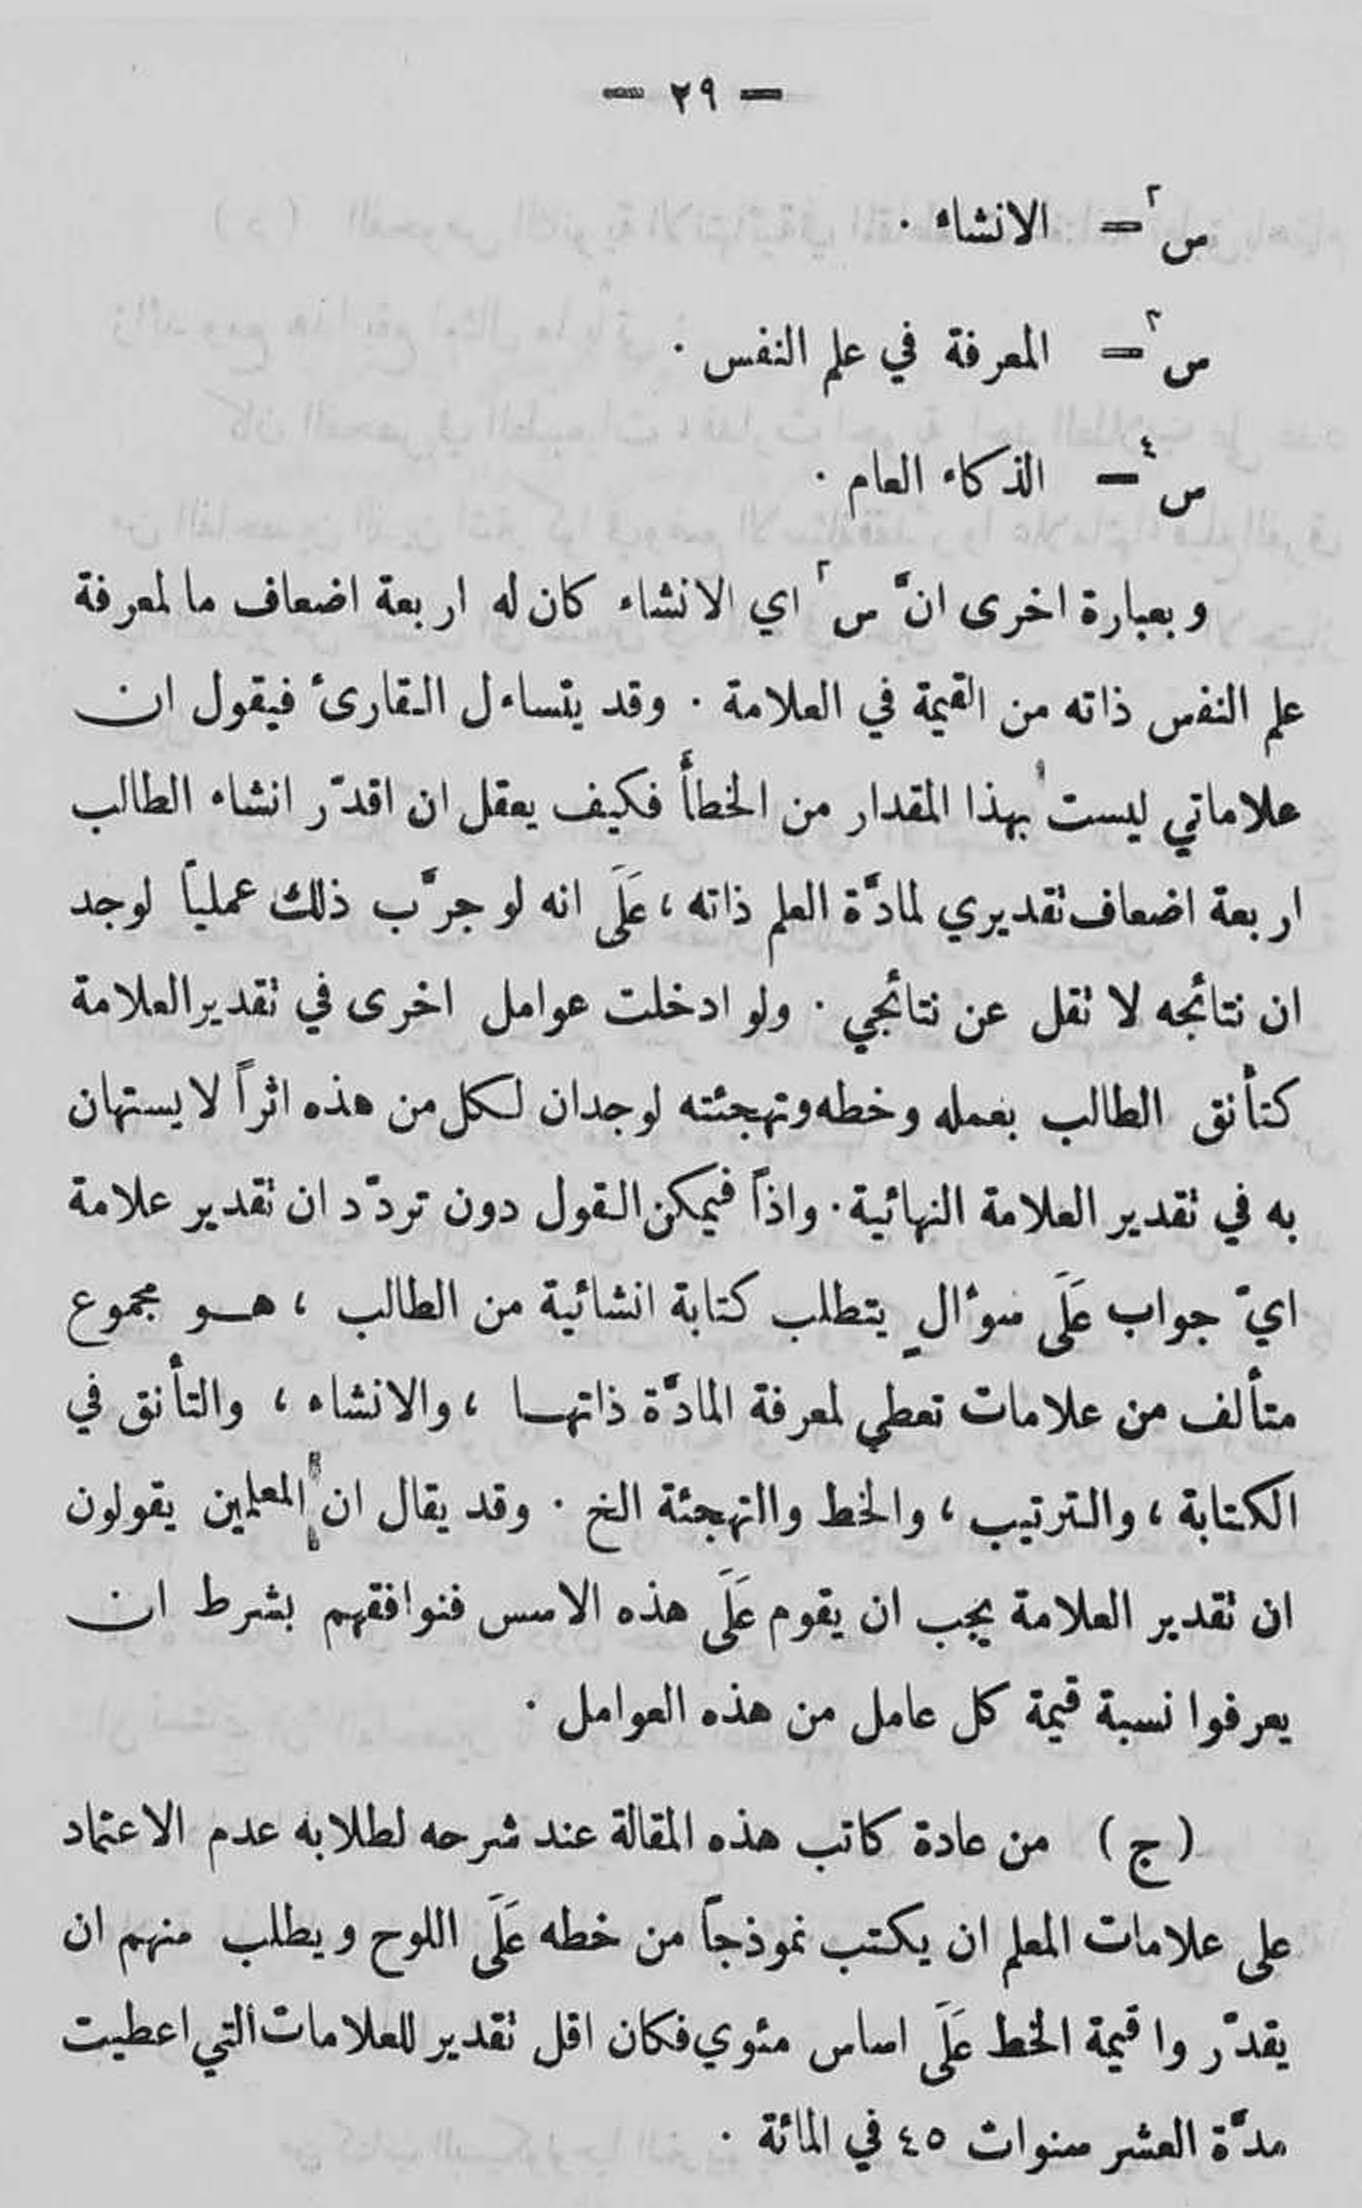 — ٢٩ —
س٢ = الانشاء .
س٣ = المعرفة في علم النفس .
س٤ — الذكاء العام .
وبعبارة اخرى انَّ س٢ اي الانشاء كان له اربعة اضعاف ما لمعرفة
علم النفس ذاته من القيمة في العلامة . وقد يتساءل القارىء فيقول ان
علاماتي ليست بهذا المقدار من الخطأ فكيف يعقل ان اقدّر انشاء الطالب
اربعة اضعاف تقديري لمادَّة العلم ذاته ، عَلَى انه لو جرَّب ذلك عمليًا لوجد
ان نتائجه لا تقل عن نتائجي . ولو ادخلت عوامل اخرى في تقدير العلامة
كتأنق الطالب بعمله وخطه وتهجئته لوجدان لكل من هذه اثراً لا يستهان
به في تقدير العلامة النهائية . واذاً فيمكن القول دون تردّد ان تقدير علامة
ايّ جواب عَلَى سوءالٍ يتطلب كتابة انشائية من الطالب ، هو مجموع
متألف من علامات تعطي لمعرفة المادَّة ذاتها ، والانشاء ، والتأنق في
الكتابة ، والترتيب ، والخط والتهجئة الخ . وقد يقال ان المعلمين يقولون
ان تقدير العلامة يجب ان يقوم عَلَى هذه الاسس فنوافقهم بشرط ان
يعرفوا نسبة قيمة كل عامل من هذه العوامل .
( ج ) من عادة كاتب هذه المقالة عند شرحه لطلابه عدم الاعتماد
على علامات المعلم ان يكتب نموذجاً من خطه عَلَى اللوح ويطلب منهم ان
يقدّروا قيمة الخط عَلَى اساس مئوي فكان اقل تقدير للعلامات التي اعطيت
مدَّة العشر سنوات ٤٥ في المائة .